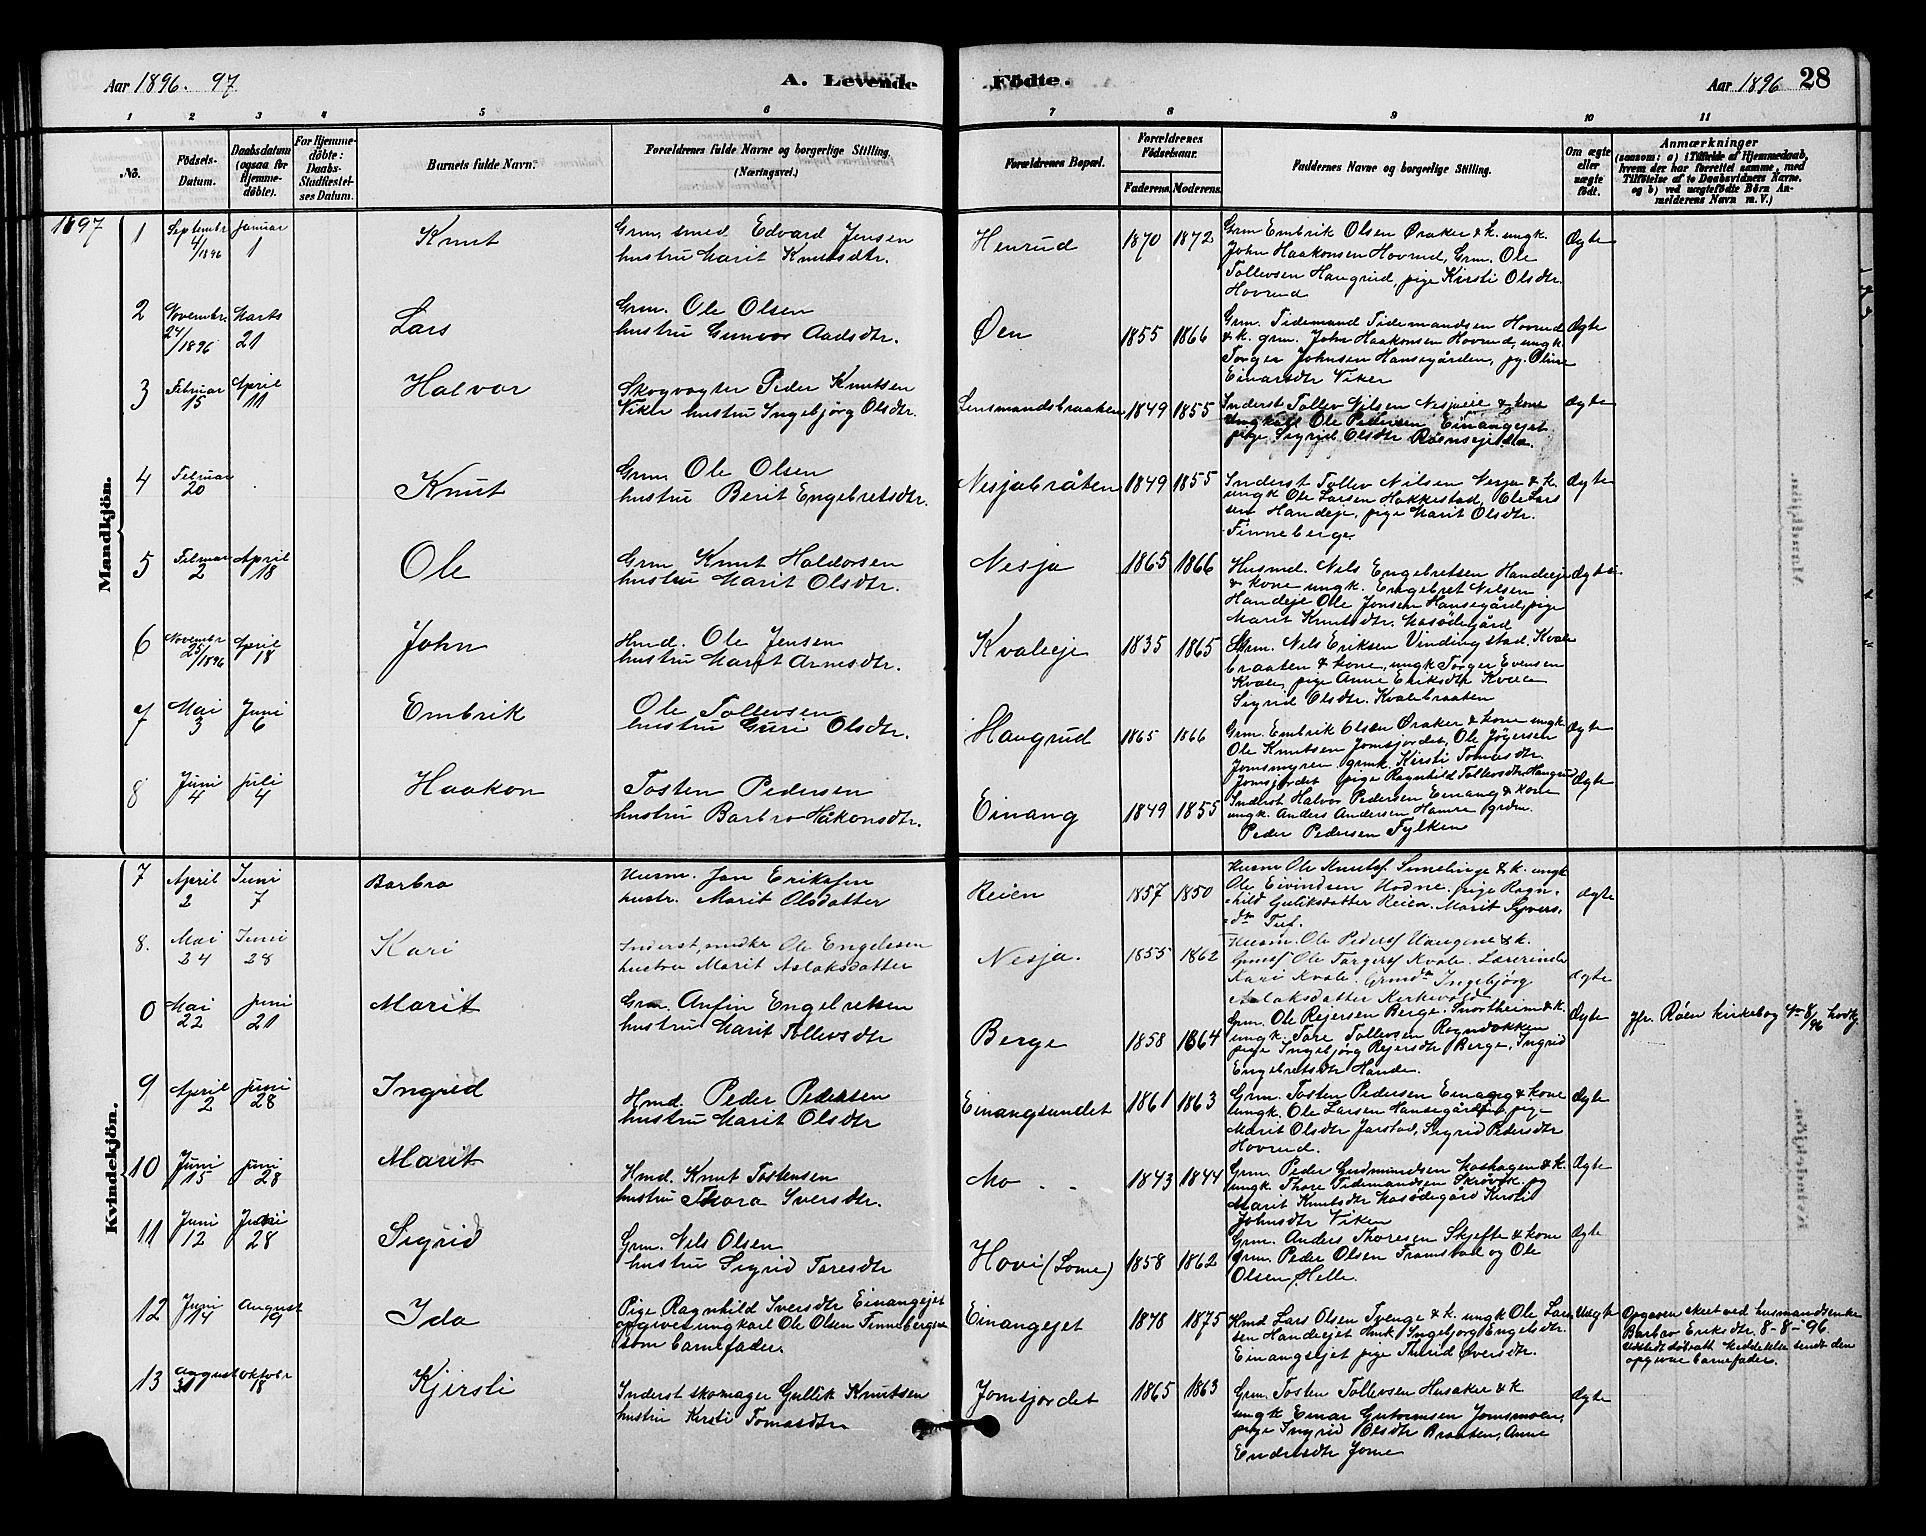 Aar 1896. 97
A. Levende
Födte.
Aar 1896 28
1 2 3 4 5 6 7 8 9 10 11
No.
Födsels-Datum.
Daabsdatum (ogsaa for Hjemmedöbte).
For Hjemmedöbte: Daabs-Stadfæstelses Datum.
Barnets fulde Navn.
Forældrenes fulde Navne og borgerlige Stilling.
(Næringsvei.)
Forældrenes Bopæl.
Forældrenes Födselsaar.
Faderens. Moderens.
Faddernes Navne og borgerlige Stilling.
Om ægte eller uægte födt.
Anmærkninger
(saasom: a) i Tilfælde af Hjemmedaab, hvem der har forrettet samme, med Tilföielse af to Daabsvidners Navne, og b) ved uægtefödte Börn Anmelderens Navn m. V.)
1897
Mandkjön.
1 Septembr 4/1896 Januar 1 Knut Grm. smed Edvard Jensen
hustru Marit Knutsdtr. Henrud 1870 1872 Grm Embrik Olsen Øraker & k. ungk.
John Haakonsen Hovrud, Grm. Ole
Tollevsen Haugrud, pige Kirsti Olsdtr.
Hovrud Ægte
2 Novembr. 24/1896 Marts 21 Lars Grm. Ole Olsen
hustru Gunvor Aadsdtr. Øen 1855 1866 Grm. Tidemand Tidemandsen Hovrud
& k. grm. John Haakonsen Hovrud, ungk
Torger Johnsen Hansegården, pg. Oline
Einarsdtr Viker Ægte
3 Februar 15 April 11 Halvor Skogvogter Peder Knutsen
Viker hustru Ingebjørg Olsdtr. Lensmandsbraaten 1849 1855 Inderst Tollev Nilsen Nesjaeie & kone
Ungkall Ole Pedersen Einangejet
pige Sigrid Olsdtr Ægte
4 Februar 20 Knut Grm. Ole Olsen
hustru Berit Engebretsdtr. Nesjabråten 1849 1855 Inderst Tollev Nilsen Nesja & k.
ungk Ole Larsen Hakkestad, Ole Lars
sen Handeje, pige Marit Olsdtr.
Finneberge Ægte
5 Februar 2 April 18 Ole Grm Knut Haldorsen
hustru Marit Olsdtr. Nesja 1865 1866 Husmd. Nils Engebretsen Handeeje
& kone ungk. Engebret Nilsen
Handeje Ole Jonsen Hansegård, pige
Marit Knutsdtr. Masødegård Ægte
6 Novembr 25/1896 April 18 John Hmd. Ole Jensen
hustru Marit Arnesdtr. Kvaleeje 1835 1865 Grm. Nels Eriksen Vindingstad. Kvale
braaten & kone, ungk Torger Evensen
Kvale, pige Anne Eriksdtr Kvale
Sigrid Olsdtr. Kvalebraaten
7 Mai 3 Juni 6 Embrik Ole Tollevsen
hustru Guri Olsdtr. Haugrud 1865 1866 Grm. Embrik Olsen Øraker & kone ungk
Ole Knutsen Jomsjordet, Ole Jøgersen
Jomsmyren grmk. Kirsti Tomasdtr
Jomsjordet pige Ragnhild Tollevsdtr Haugrud Ægte
8 Juni 4 Juli 4 Haakon Tosten Pedersen
hustru Barbro Håkonsdtr. Einang 1849 1855 Inderst Halvor Pedersen Einang & kone
ungk. Anders Andersen Hamre grdm.
Peder Pedersen Fylken Ægte
Kvindekjön.
7 April 2 Juni 7 Barbro Husm. Jon Eriksen
hustr. Marit Olsdatter Reien 1857 1850 Husm Ole Knuts. & k. ungk
Ole Eivindsen Hodne. pige Ragn-
hild Guliksdatter Reien. Marit Syvers-
dtr Tuf. Ægte
8. Mai 24 Juni 28 Kari Inderst, Ole Engelesen
hustru Marit Aslaksdatter Nesja. 1855 1862 Husm. Ole Peders. Haugene & k.
Ole Torgers. Kvale. Lærerinde
Kari Kvale. Ingebjørg
Aslaksdatter Kirkevold Ægte
0 Mai 22 Juni 21 Marit Grm. Anfin Engelretsen
hustru Marit Tollevsdtr Berge 1858 1864 Grm. Ole Reiersen Berge, Snortheim & k.
ungk. Tore Tollevsen Rogndokken
pige Ingebjørg Reiersdtr Berge, Ingrid
Engebretsdtr Hande. Ægte Jfr. Röen kirkebog
9 April 2 Juni 28 Ingrid Hmd. Peder Pedersen
hustru Marit Olsdtr Einangsundet 1861 1863 Grm. Tosten Pedersen Einang & kone
ungk. Ole Larsen Hansegård, pige
Marit Olsdtr Jarstad, Sigrid Pedersdtr
Hovrud. Ægte
10 Juni 15 Juni 28 Marit Hmd. Knut Tostensen
hustru Thora Sversdtr. Mo 1843 1844 Grm. Peder Gudmundsen Moshagen & k.
ungk. Thore Tidemandsen Skrövik, pg
Marit Knutsdtr Masødegård Kirsti
Johnsdtr Viken Ægte
11 Juni 12 Juni 28 Sigrid Grm. Nels Olsen
hustru Sigrid Toresdtr Hovi (Lome) 1858 1862 Grm. Anders Thoresen Skjefte & kone
Grm. Peder Olsen Framstad og Ole
Olsen Helle. Ægte
12 Juni 14 August 19 Ida Pige Ragnhild Iversdtr Einangejet
opgives ungkarl Ole Olsen Finneberge
som barnefader. Einangejet 1848 1875 Hmd Lars Olsen Tvenge & k. ungk Ole Lars
sen Handeejet Ingebjørg Engelsdtr.
Einangsejet pige Turid Øversdtr. Uægte Opgaven skeet ved husmandsenke
Barbro Eriksdtr, 8-8-96.
Meddelelse sendt den
opgivne barnefader.
13 August 31 Oktobr 18 Kjersti Inderst skomager Gullik Knutsen
hustru Kirsti Tomasdtr Jomsjordet 1865 1863 Grm. Tosten Tollevsen Husaker & k
ungk Einar Guttormsen Jomsmoen,
pige Ingrid Olsdtr Braaten, Anne
Endresdtr Jome Ægte